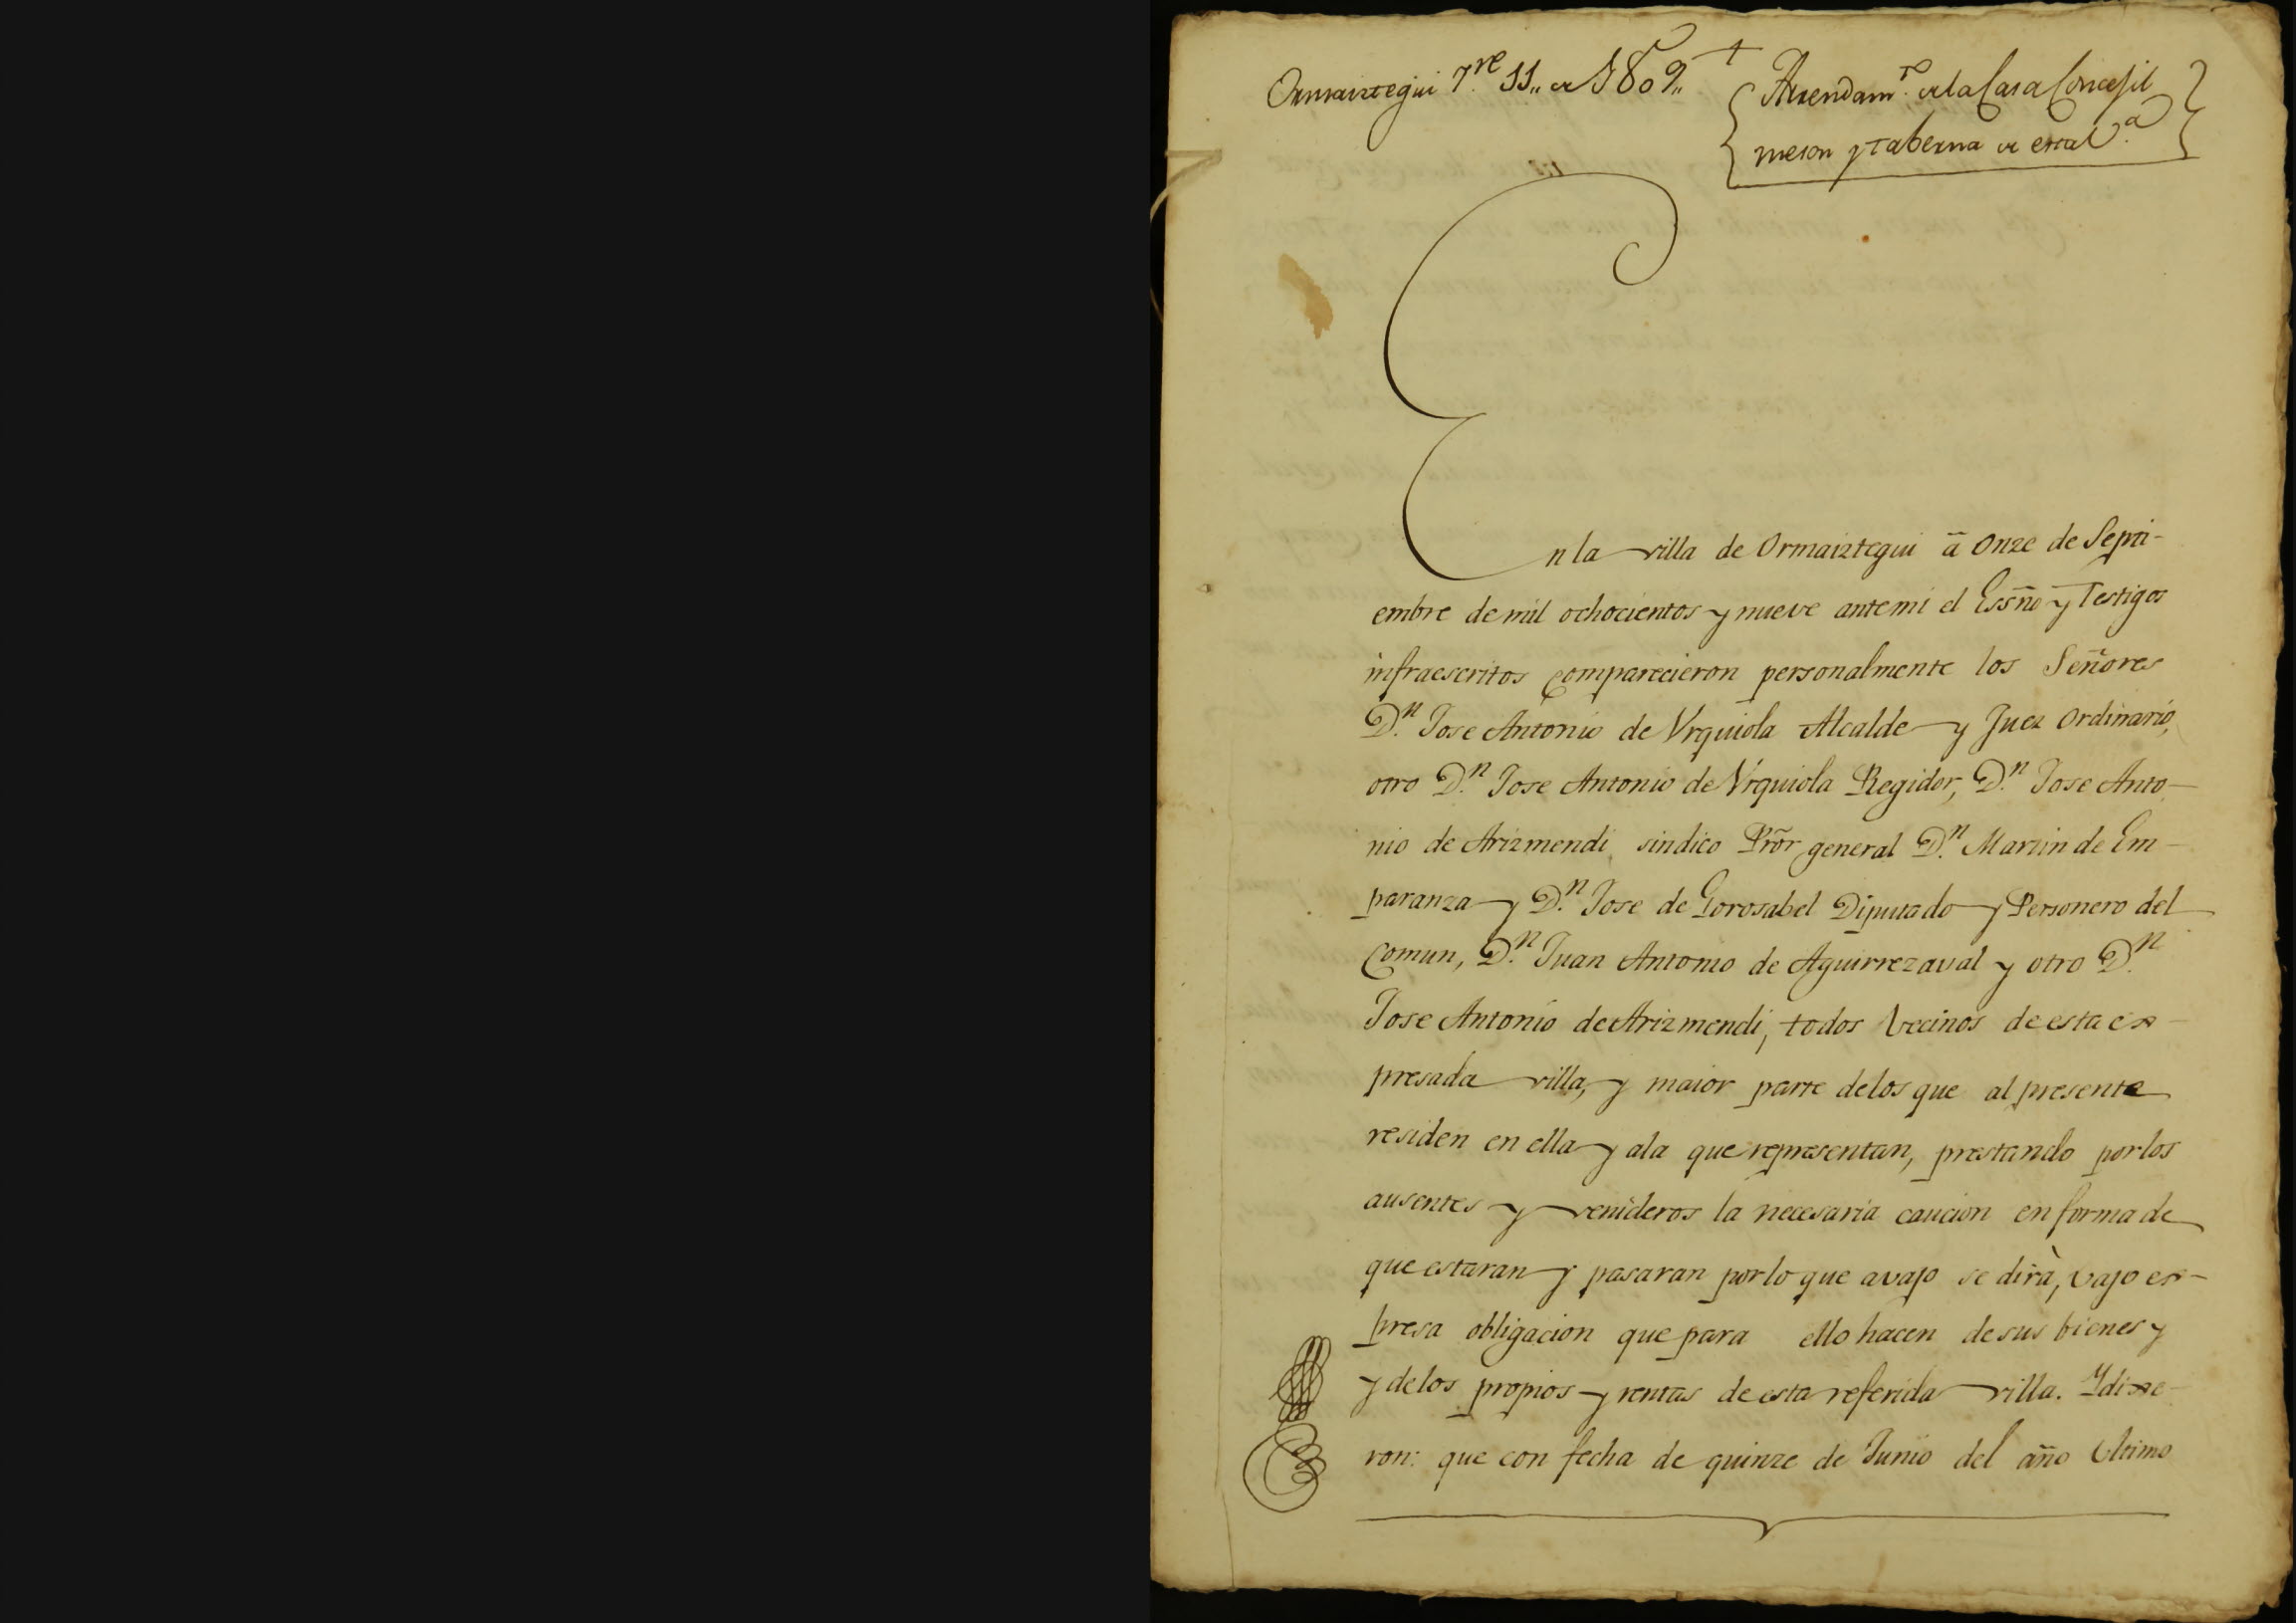 Ormaiztegui 7.re 11,, de 1809,,
Arrendam.to de la Casa Concejil
meson y taberna de esta V.a
En la villa de Ormaiztegui â onze de Septi-
embre de mil ochocientos y nueve ante mi el Essño y Testigos
infraescritos comparecieron personalmente los Señores
D.n Jose Antonio de Vrquiola Alcalde y Juez Ordinario,
otro D.n Jose Antonio de Vrquiola Regidor, D.n Jose Anto-
nio de Arizmendi, sindico Prõr general D.n Martin de Em-
paranza y D.n Jose de Gorosabel Diputado y Personero del
Comun, D.n Juan Antonio de Aguirrezaval y otro D.n
Jose Antonio de Arizmendi, todos Vecinos de esta ex-
presada villa, y maior parte delos que al presente
residen en ella y ala que representan, prestando por los
ausentes y venideros la necesaria caucion en forma de
que estaran y pasaran por lo que avajo se dirà, vajo ex-
presa obligacion que para ello hacen de sus bienes y
y de los propios y rentas de esta referida villa. Y dixe-
ron: que con fecha de quinze de Junio del año Ultimo